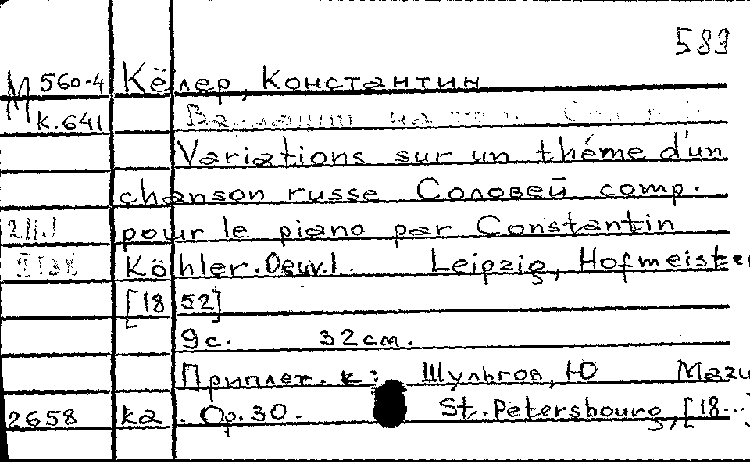 583
М 560-4 Кёлер, Константин
К.641
Variations sur un théme d'un
chanson russe Соловей comp.
pour le piano par Constantin
Köhler. Oeuv.1 Leipzig, Hofmeister
[1852]
9с. 32см.
Приплет. к: Шульгов, Ю
2658 ка. Op.30. St. Petersbourg, [18..]